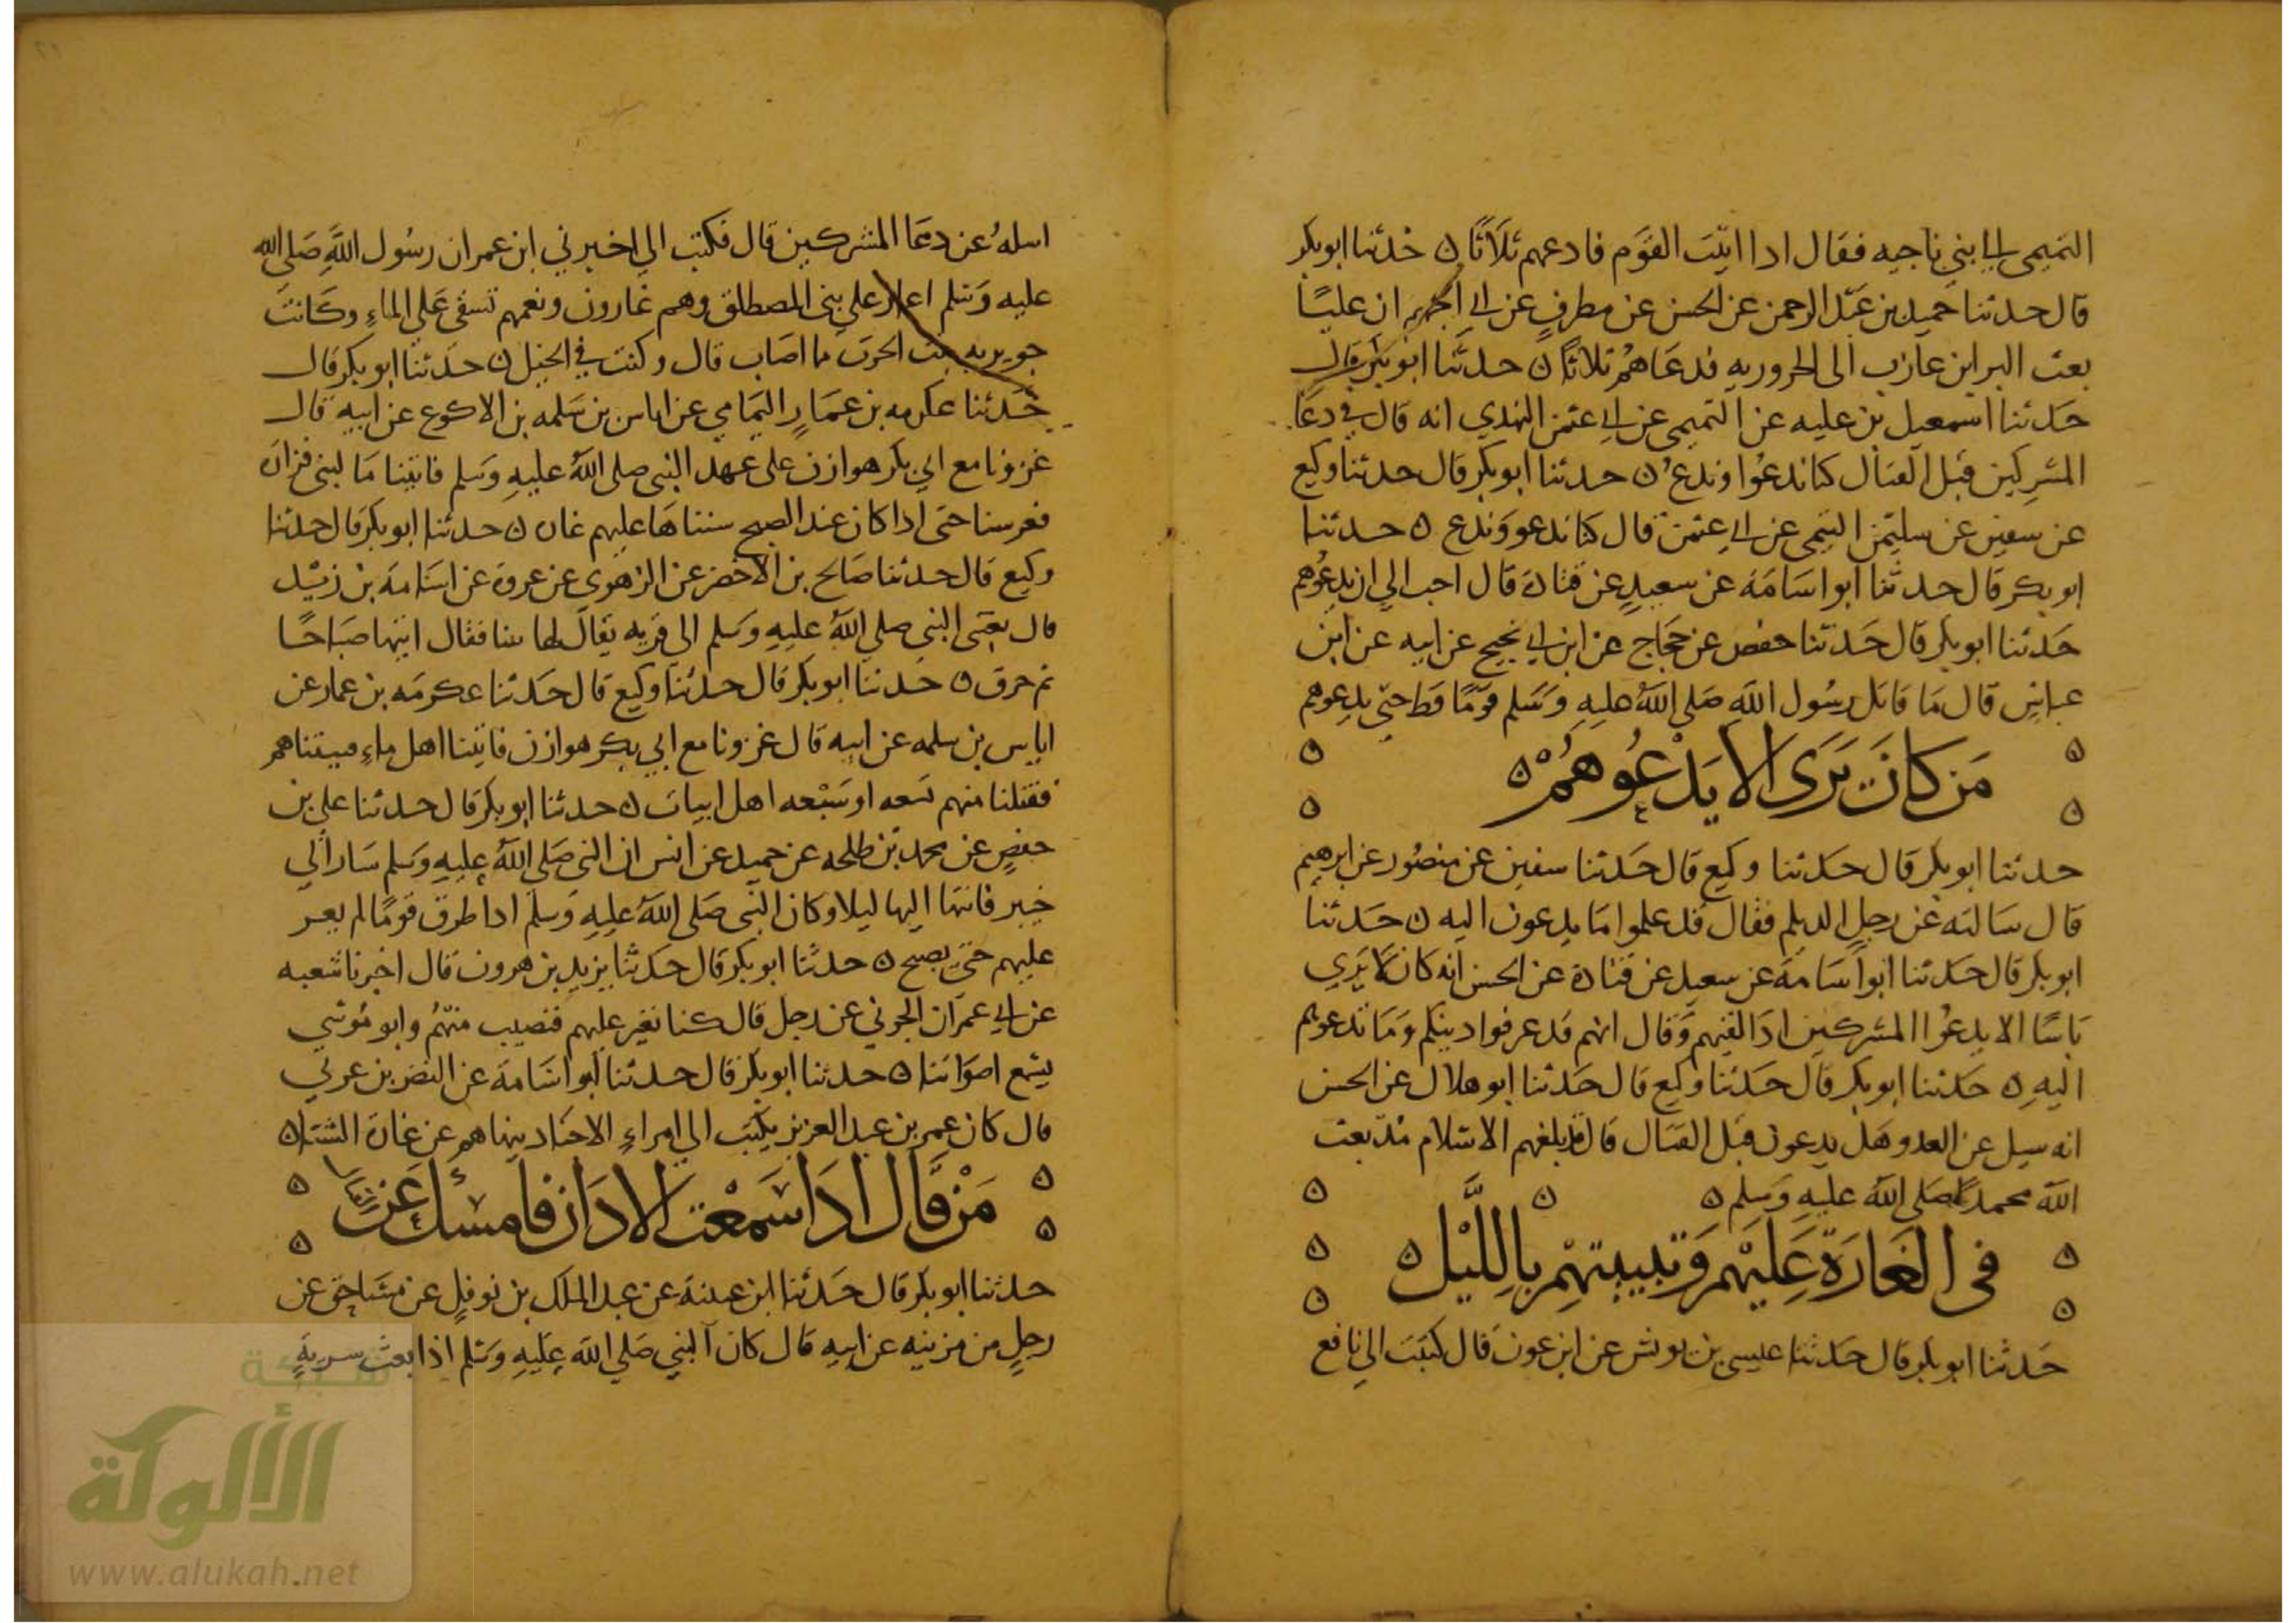 التميمي الي بني ناجيه فقال ادا اتيت القوم فادعهم ثلاثا ه حدثنا ابو بكر
قال حدثنا حميد بن عبد الرحمن عن الحسن عن مطرف عن ابي الجهم ان عليا
بعث البرا بن عازب الى الحروريه فدعاهم ثلاثا ه حدثنا ابو بكر قال
حدثنا اسمعيل بن عليه عن التميمي عن ابي عثمن النهدي انه قال في دعا
المشركين قبل القتال كنا ندعوا وندع ه حدثنا ابو بكر قال حدثنا وكيع
عن سفين عن سليمن التيمي عن ابي عثمن قال كنا ندعو وندع ه حدثنا
ابو بكر قال حدثنا ابو اسامة عن سعيد عن قتادة قال احب الي ان يدعوهم
حدثنا ابو بكر قال حدثنا حفص عن حجاج عن ابن ابي نجيح عن ابيه عن ابن
عباس قال ما قاتل رسول الله صلى الله عليه وسلم قوما قط حتى يدعوهم
من كان يرى الا يدعوهم ه
حدثنا ابو بكر قال حدثنا وكيع قال حدثنا سفين عن منصور عن ابرهيم
قال سالته عن رجل الديلم فقال قد علموا ما يدعون اليه ه حدثنا
ابو بكر قال حدثنا ابو اسامة عن سعيد عن قتادة عن الحسن انه كان لا يري
باسا الا يدعوا المشركين ادا لقيهم وقال انهم قد عرفوا دينكم وما تدعوهم
اليه ه حدثنا ابو بكر قال حدثنا وكيع قال حدثنا ابو هلال عن الحسن
انه سيل عن العدو هل يدعون قبل القتال قال قد بلغهم الاسلام مذ بعث
الله محمدا صلى الله عليه وسلم ه
في الغارة عليهم وتبييتهم بالليل ه
حدثنا ابو بكر قال حدثنا عيسى بن يونس عن ابن عون قال كتبت الي نافع
اسله عن دعا المشركين قال فكتب الي اخبرني ابن عمر ان رسول الله صلى الله
عليه وسلم اغار علي بني المصطلق وهم غارون ونعمهم تسقي على الماء وكانت
جويريه بنت الحرث مما اصاب قال وكنت في الخيل ه حدثنا ابو بكر قال
حدثنا عكرمه بن عمار اليمامي عن اياس بن سلمه بن الاكوع عن ابيه قال
غزونا مع ابي بكر هوازن على عهد النبي صلى الله عليه وسلم فاتينا ما لبني فزارة
فعرسنا حتى ادا كان عند الصبح سنناها عليهم غارة ه حدثنا ابو بكر قال حدثنا
وكيع قال حدثنا صالح بن الاخضر عن الزهري عن عروة عن اسامة بن زيد
قال بعثني النبي صلى الله عليه وسلم الى قريه يقال لها يبنا فقال ايتها صباحا
ثم حرق ه حدثنا ابو بكر قال حدثنا وكيع قال حدثنا عكرمه بن عمار عن
اياس بن سلمه عن ابيه قال غزونا مع ابي بكر هوازن فاتينا اهل ماء فبيتناهم
فقتلنا منهم تسعه او سبعه اهل ابيات ه حدثنا ابو بكر قال حدثنا علي بن
حفص عن محمد بن طلحه عن حميد عن انس ان النبي صلى الله عليه وسلم سار الي
خيبر فانتها اليها ليلا وكان النبي صلى الله عليه وسلم ادا طرق قوما لم يغر
عليهم حتى يصبح ه حدثنا ابو بكر قال حدثنا يزيد بن هرون قال اخبرنا شعبه
عن ابي عمران الجوني عن رجل قال كنا نغير عليهم فنصيب منهم وابو موسي
يسمع اصواتنا ه حدثنا ابو بكر قال حدثنا ابو اسامة عن النضر بن عربي
قال كان عمر بن عبد العزيز يكتب الي امراء الاجناد ينهاهم عن غارة الشتا ه
من قال ادا سمعت الادان فامسك عن القتال
حدثنا ابو بكر قال حدثنا ابن عيينة عن عبد الملك بن نوفل عن مساحق عن
رجل من مزينه عن ابيه قال كان النبي صلى الله عليه وسلم اذا بعث سرية
شبكة
الألوكة
www.alukah.net